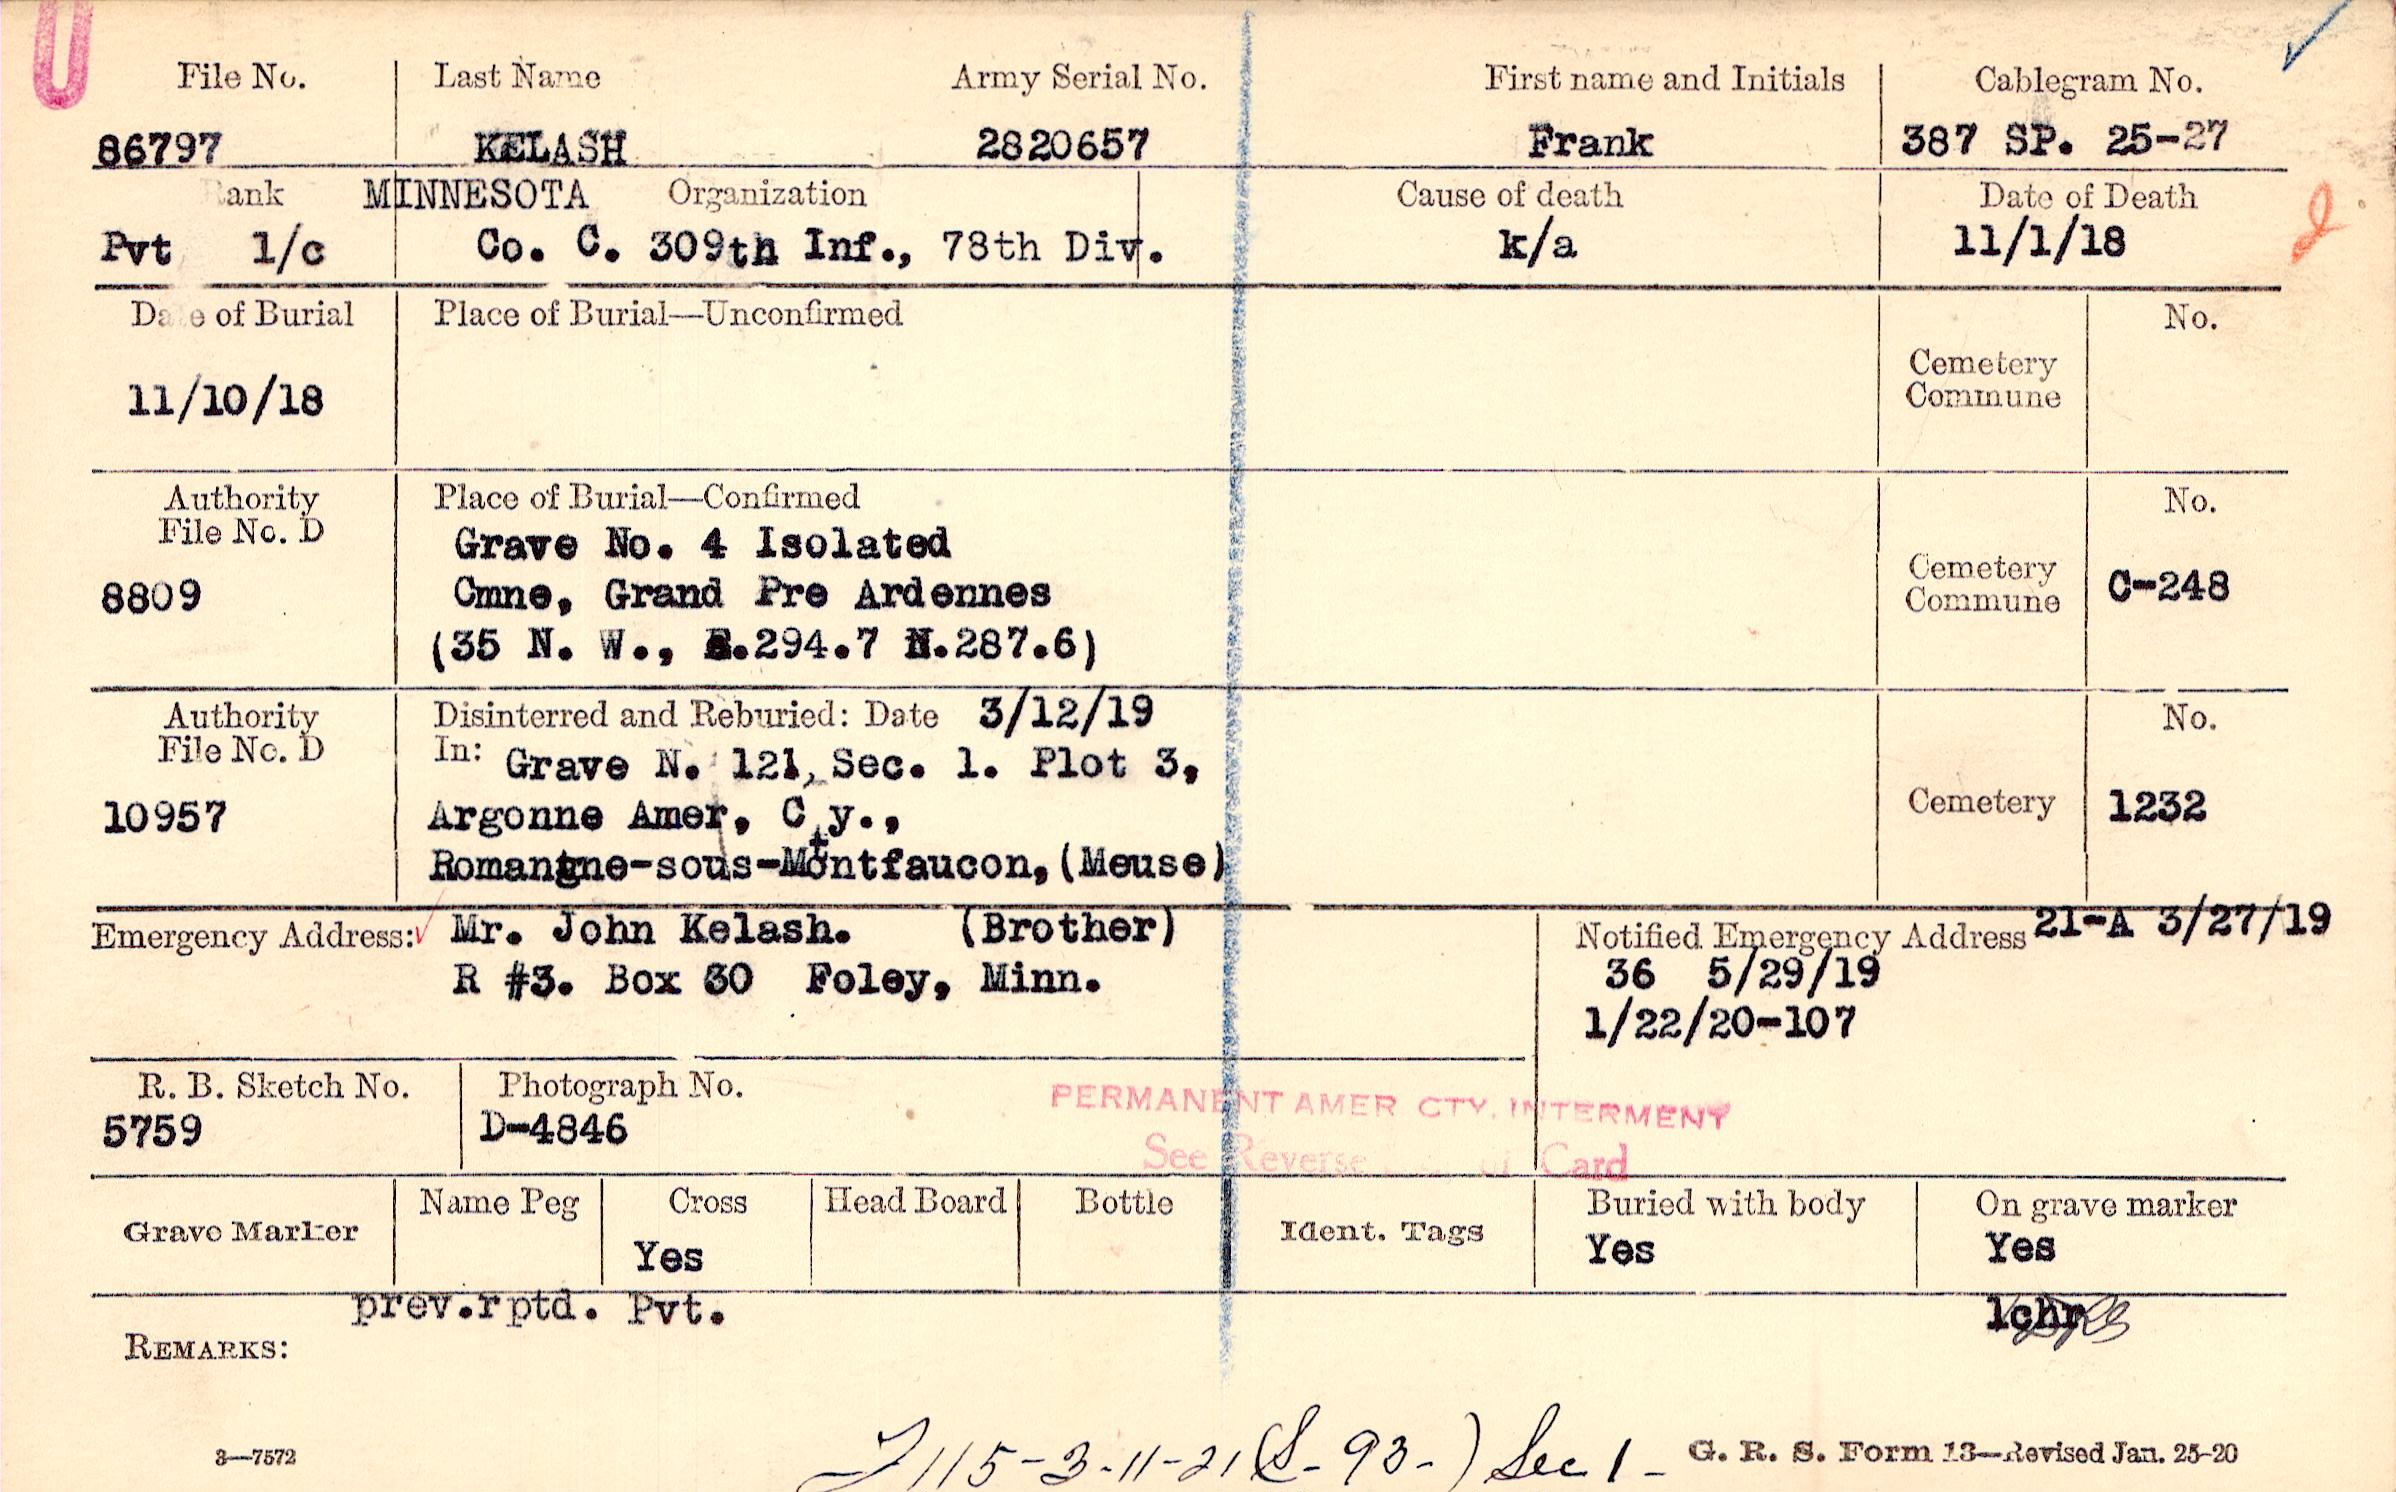 U
File No. Last Name Army Serial No. First name and Initials Cablegram No.
86797 KELASH 2820657 Frank 387 SP. 25-27
Rank MINNESOTA Organization Cause of death Date of Death
Pvt 1/c Co. C. 309th Inf., 78th Div. k/a 11/1/18
Date of Burial Place of Burial—Unconfirmed No.
11/10/18 Cemetery
Commune
Authority Place of Burial—Confirmed No.
File No. D Grave No. 4 Isolated
8809 Cmne, Grand Pre Ardennes Cemetery Commune C-248
(35 N. W., E.294.7 N.287.6)
Authority Disinterred and Reburied: Date 3/12/19 No.
File No. D In: Grave N. 121, Sec. 1. Plot 3,
10957 Argonne Amer, Cty., Cemetery 1232
Romangne-sous-Montfaucon, (Meuse)
Emergency Address: Mr. John Kelash. (Brother) Notified Emergency Address 21-A 3/27/19
R #3. Box 30 Foley, Minn. 36 5/29/19
1/22/20-107
R. B. Sketch No. Photograph No.
5759 D-4846
PERMANENT AMER CTY. INTERMENT
See Reverse Card
Grave Marker Name Peg Cross Head Board Bottle Ident. Tags Buried with body On grave marker
Yes Yes Yes
prev.rptd. Pvt. lchr
REMARKS:
115-3-11-21 (S-93-) Sec 1-
3—7572 G. R. S. Form 13—Revised Jan. 25-20